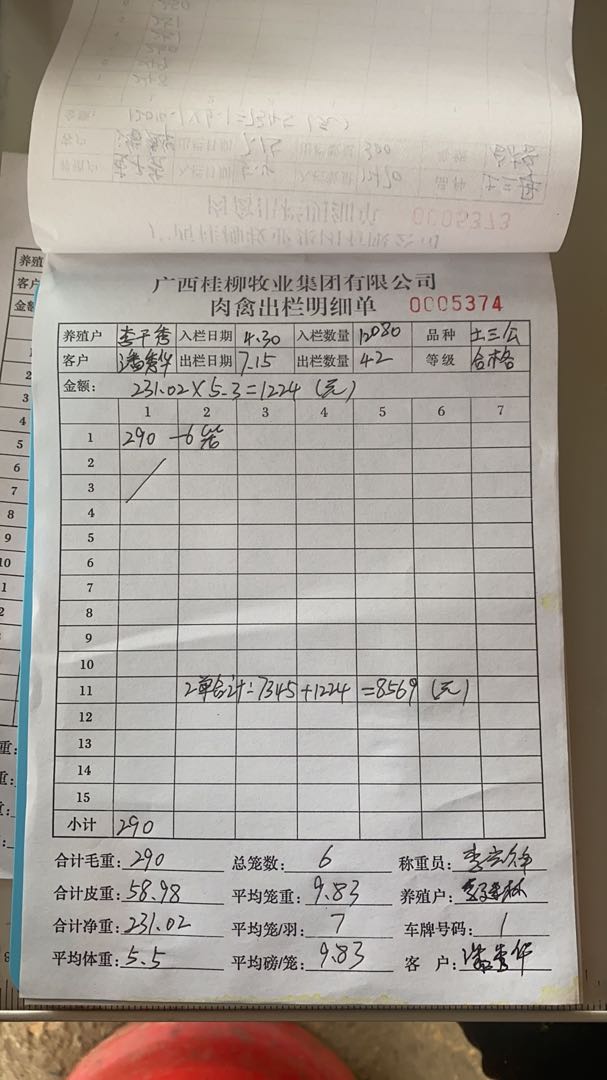 0005373
广西桂柳牧业集团有限公司
肉禽出栏明细单 0005374
养殖户 李干秀 入栏日期 4.30 入栏数量 12080 品种 土三公
客户 潘秀华 出栏日期 7.15 出栏数量 42 等级 合格
金额: 231.02×5.3=1224 (元)
1 2 3 4 5 6 7
1 290 -6笼
2
3
4
5
6
7
8
9
10
11 2单合计:7345+1224=8569 (元)
12
13
14
15
小计 290
合计毛重: 290 总笼数: 6 称重员:
合计皮重: 58.98 平均笼重: 9.83 养殖户:
合计净重: 231.02 平均笼/羽: 7 车牌号码: /
平均体重: 5.5 平均磅/笼: 9.83 客户: 潘秀华